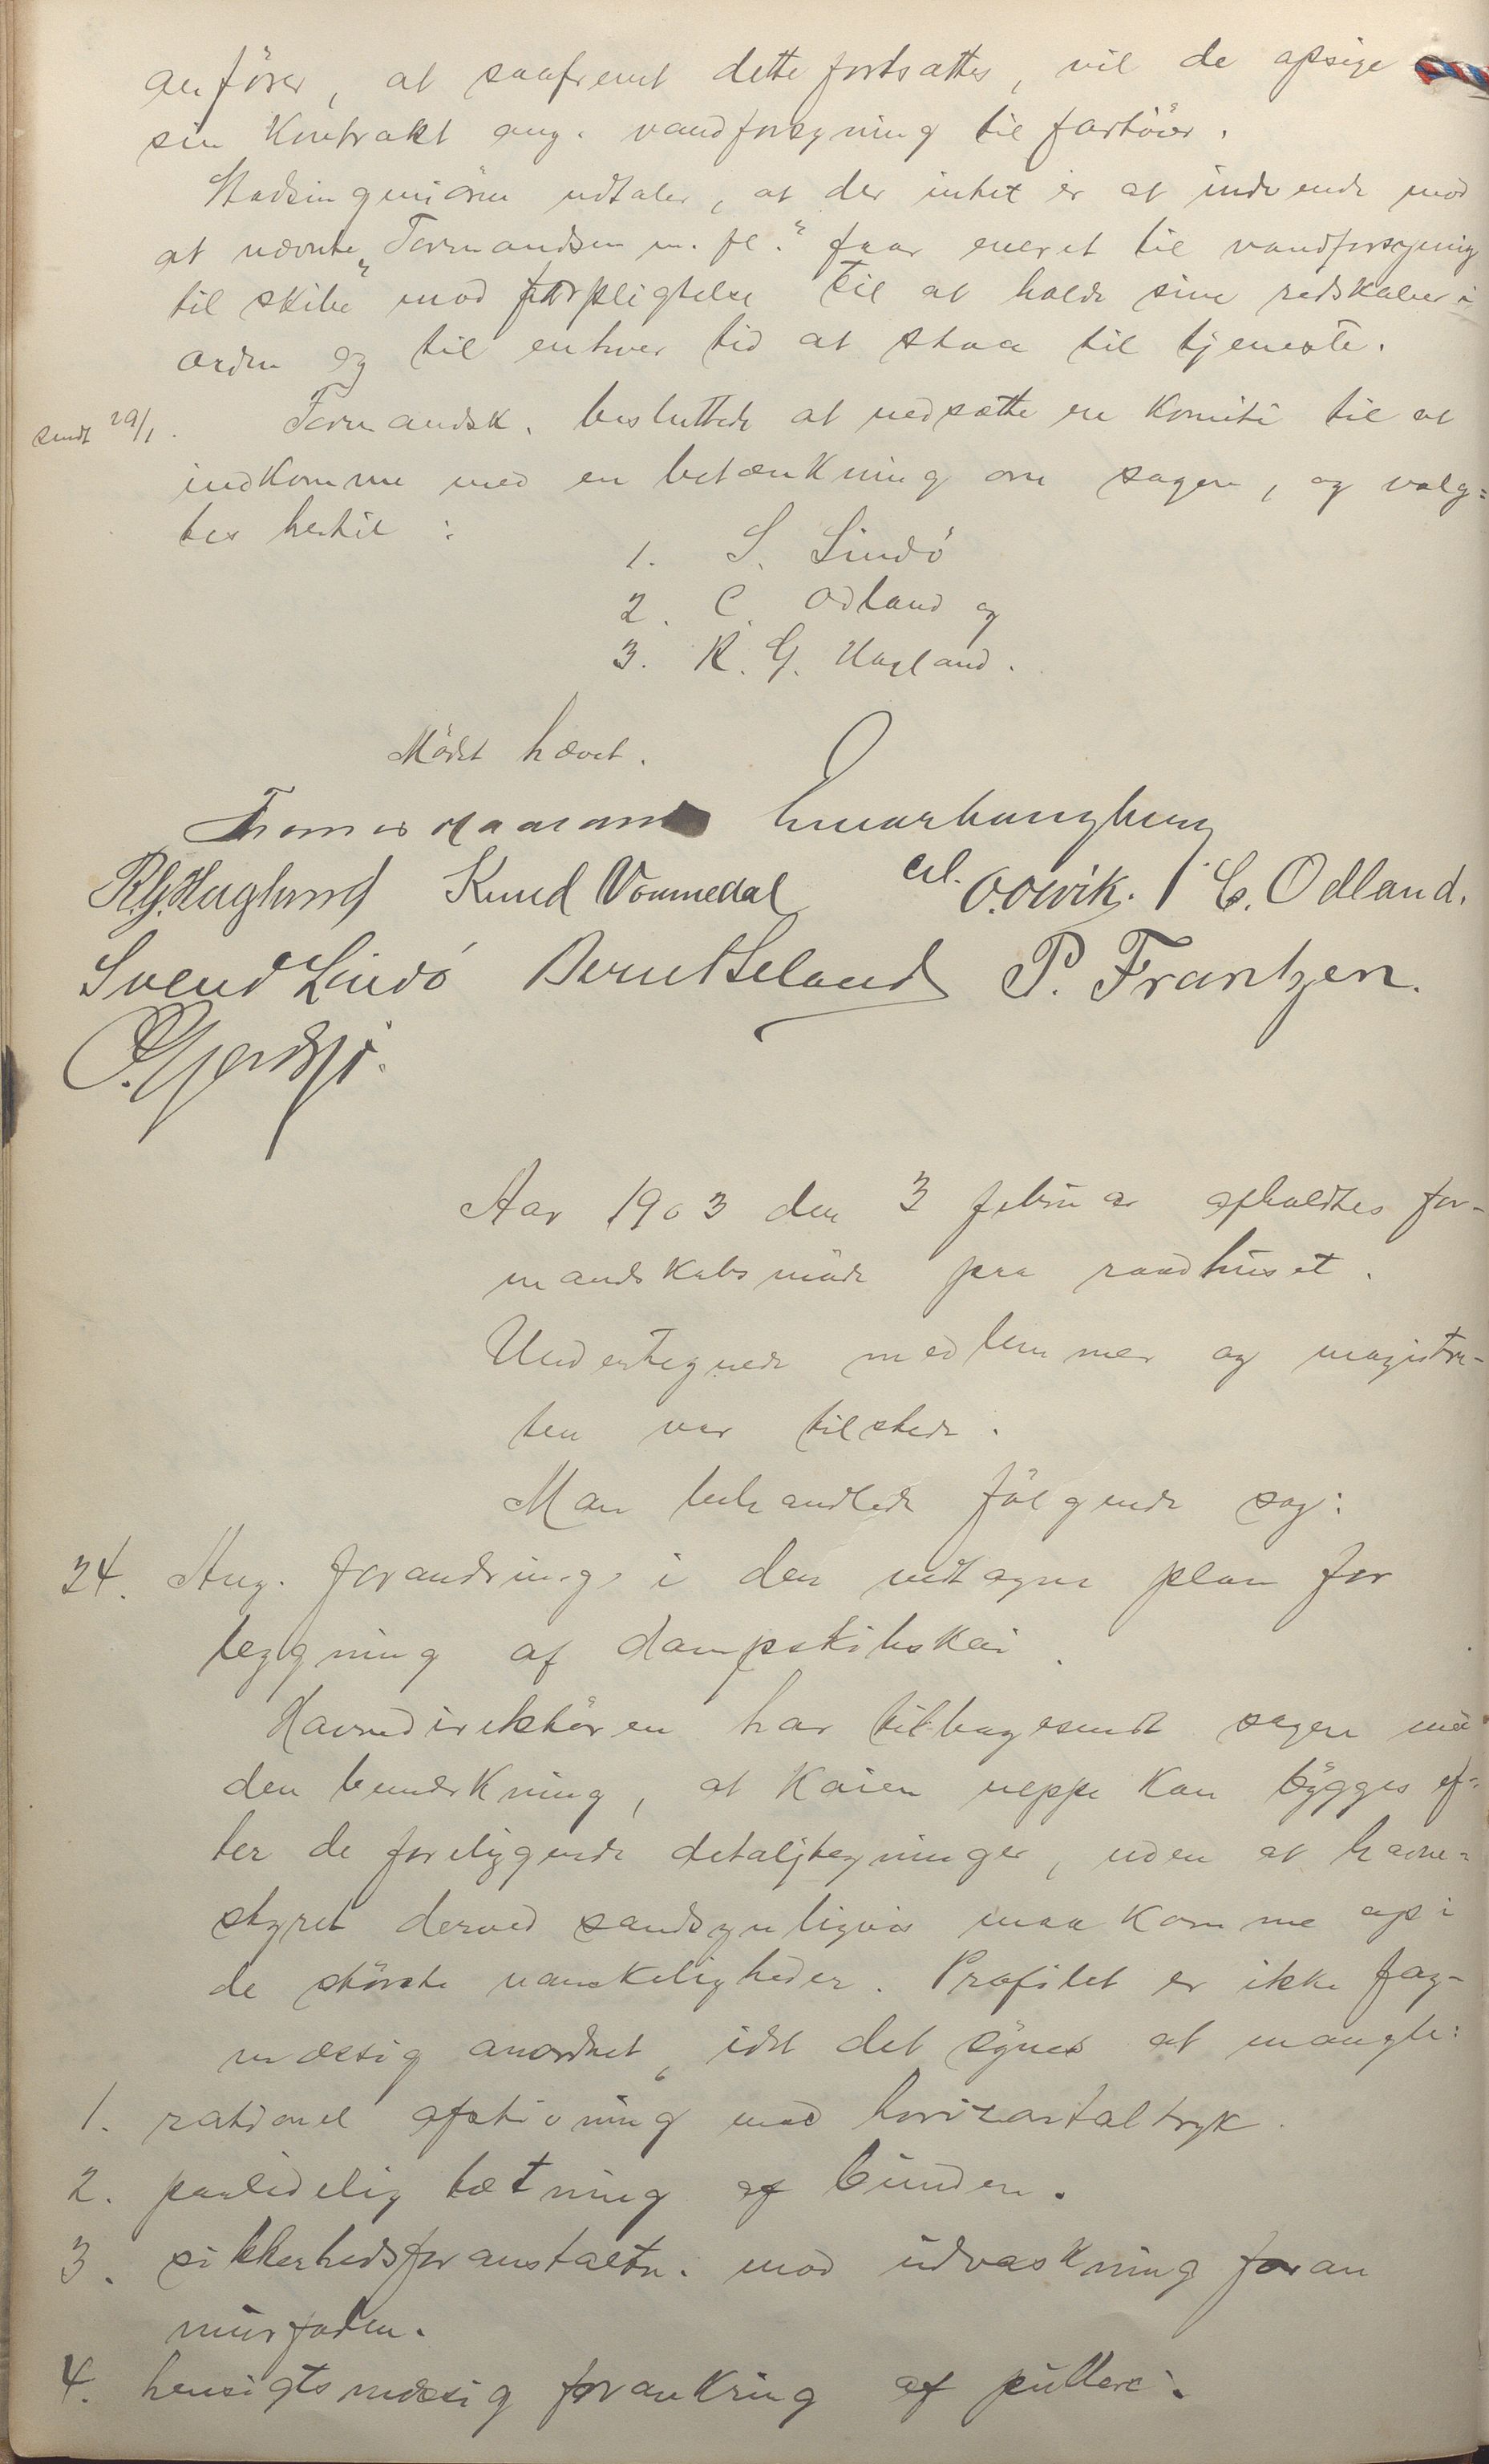 anfører, at saafremt dette fortsættes, vil de opsige
sin Kontrakt ang. vandforsyning til fartøier.
Stadsingeniøren udtaler, at der intet er at indvende mod
at nævnte "Tormandsen m. fl." faar eneret til vandforsyning
til skibe mod forpligtelse til at holde sine redskaber i
orden og til enhver tid at staa til tjeneste.
sendt 29/1.
Formandsk. besluttede at nedsætte en Komite til at
indkomme med en betænkning om sagen, og valg=
tes hertil:
1. S. Lindø
2. C. Odland og
3. R. G. Hagland.
Mødet hævet.
Thomas
R.G. Hagland Knud Vormedal O. Olvik. C. Odland.
Svend Lindø Bernt Seland P. Frantzen.
Aar 1903 den 3 februar afholdtes for-
mandskabsmøde paa raadhuset.
Undertegnede medlemmer og magistra-
ten var tilstede.
Man behandlede følgende sag:
24. Ang. forandring i den vedtagne plan for
bygning af dampskibskai.
Havnedirektøren har tilbagesendt sagen med
den bemærkning, at Kaien neppe kan bygges ef-
ter de foreliggende detaljtegninger, uden at havne=
styret derved sandsynligvis maa komme op i
de største vanskeligheder. Profilet er ikke fag-
mæssig anordnet, idet det synes at mangle:
1. rationel afstivning mod horizontaltryk.
2. paalidelig tætning af bunden.
3. sikkerhedsforanstaltn. mod udvaskning foran
murfoden.
4. hensigtsmæssig forankring af pullere.